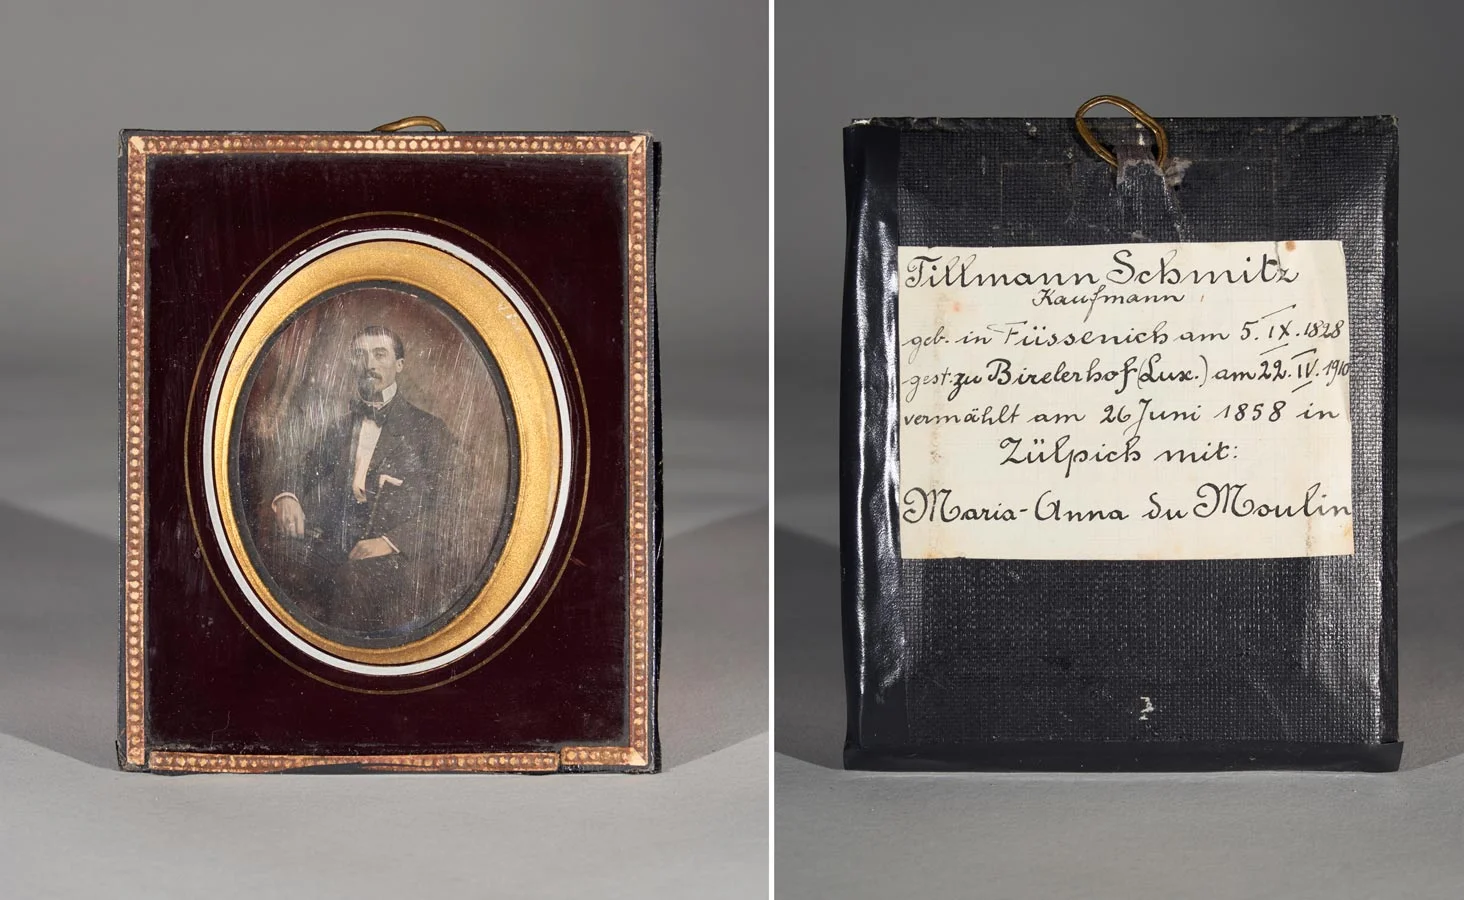 Tillmann Schmitz
Kaufmann
geb. in Füssenich am 5. IX. 1828
gest. zu Birelerhof (Lux.) am 22. IV. 1910
vermählt am 26 Juni 1858 in
Zülpich mit:
Maria-Anna du Moulin